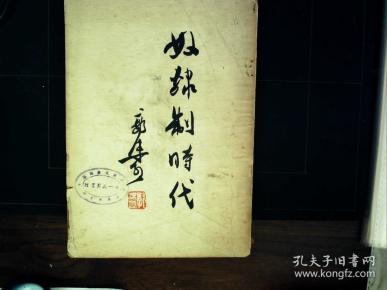 奴隸制時代
郭沫若
孔夫子旧书网
www.kongfz.com